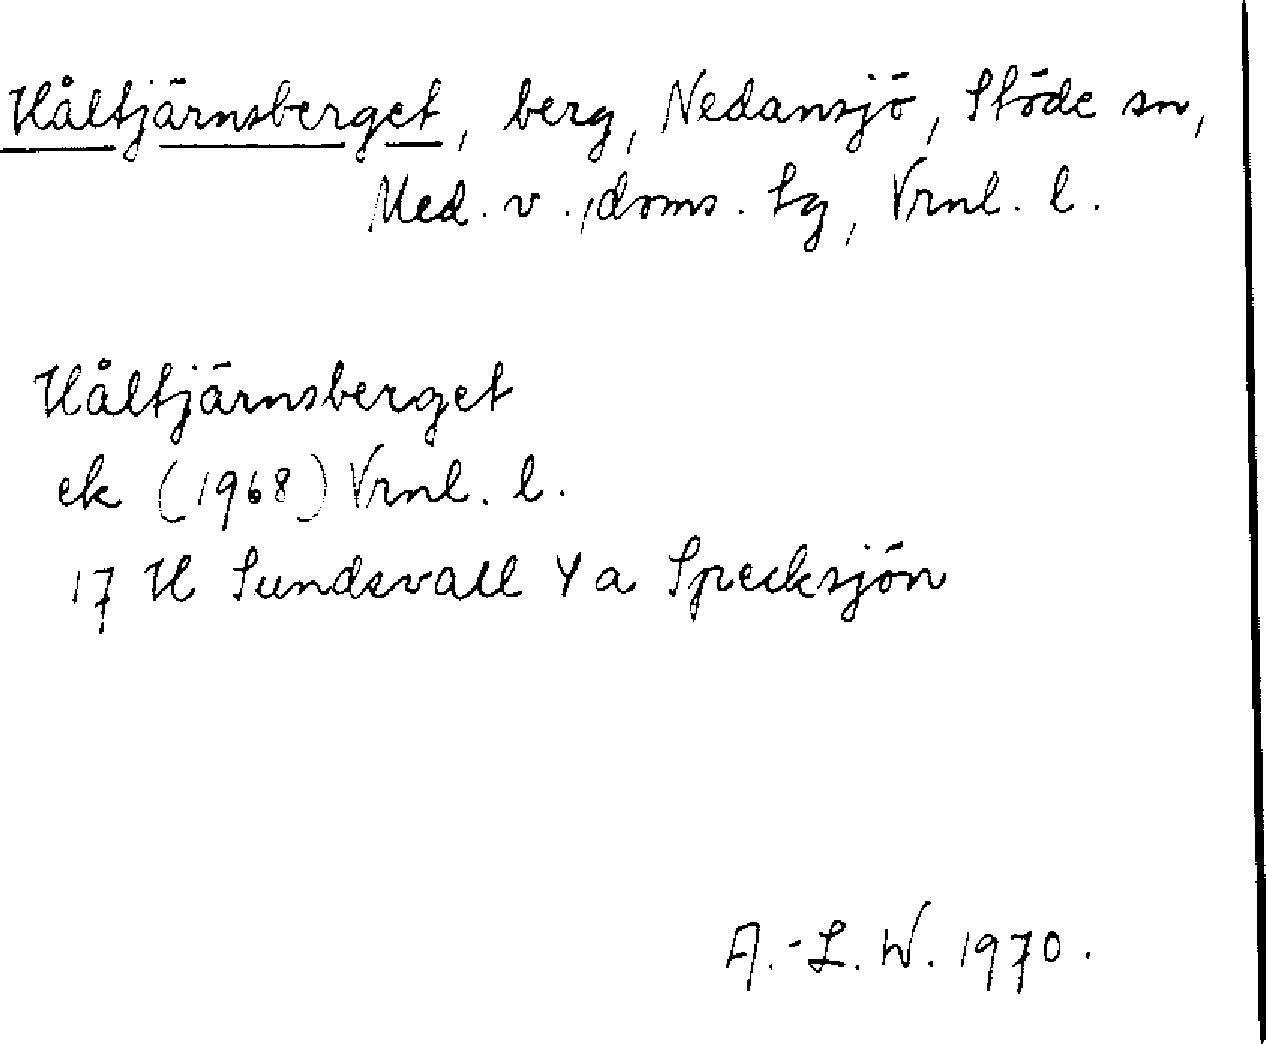 Håltjärnsberget, berg, Nedansjö, Stöde sn,
Med. v., doms. lg, Vrnl. l.
Håltjärnsberget
ek (1968) Vrnl. l.
17 H Sundsvall 4 a Specksjön
A.-L. W. 1970.